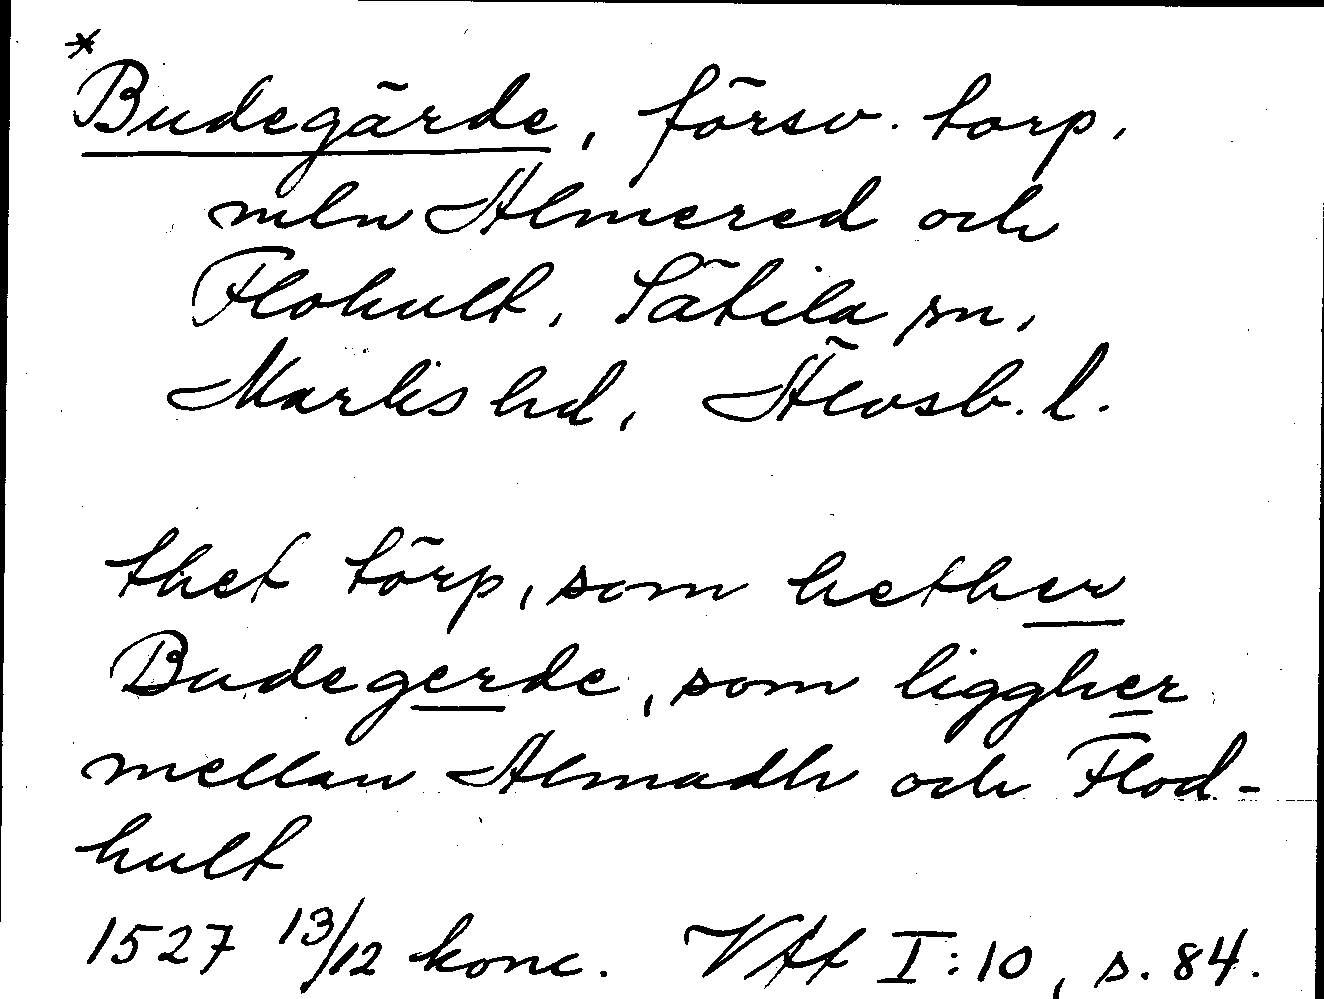 *Budegärde, försv. torp,
mln Almered och
Flohult, Sätila sn,
Marks hd, Älvsb. l.
thet törp, som hether
Budegerde, som liggher
mellan Almadh och Flod-
hult
1527 13/12 konc. VFT I:10, s. 84.